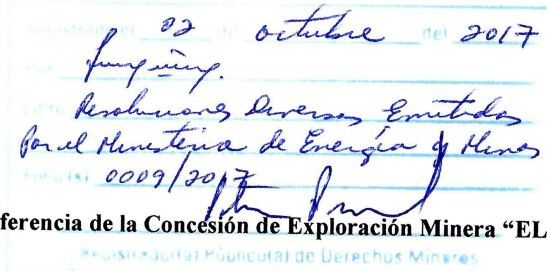 Registrado el 02 de octubre del 2017
Por
Libro Resoluciones Diversas Emitidas
Por el Ministerio de Energía y Minas
Folio(s) 0009/2017
ferencia de la Concesión de Exploración Minera “EL
Registrador(a) Público(a) de Derechos Mineros